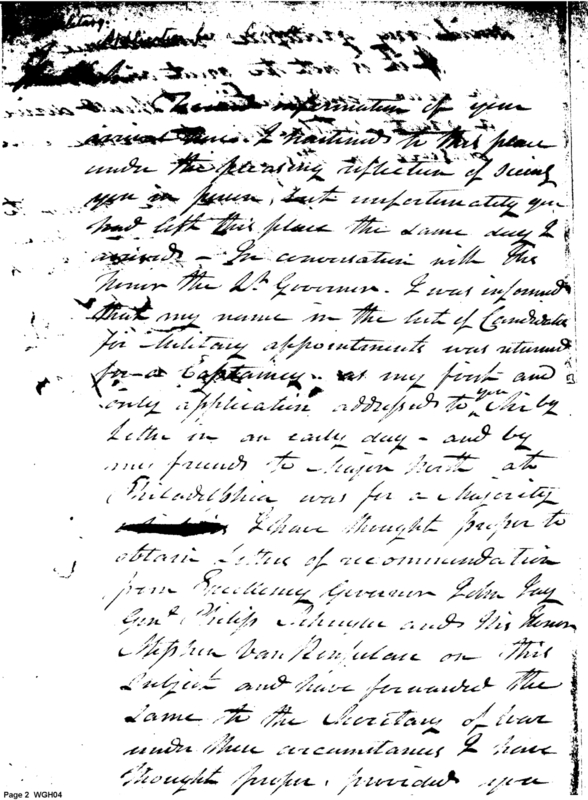 information of your
arrival here. I hastened to this place
under the pleasing reflection of seeing
you in person, but unfortunately you
had left this place the same day I
arrived – In conversation with His
Honor the Lt Governor. I was informed
that my name in the list of Candidates
for Military appointments was returned
for a Captaincy. as my first and
only application addressed to you Sir by
Letter in an early day – and by
my friends to Major North at
Philadelphia was for a Majority
I have thought proper to
obtain Letters of recommendation
from Excellency Governor John Jay
Genl Philip Schuyler and His Honor
Stephen Van Renselaer on this
Subject and have forwarded the
Same to the Secretary of War
under these circumstances I have
thought proper. provided you
Page 2 WGH04